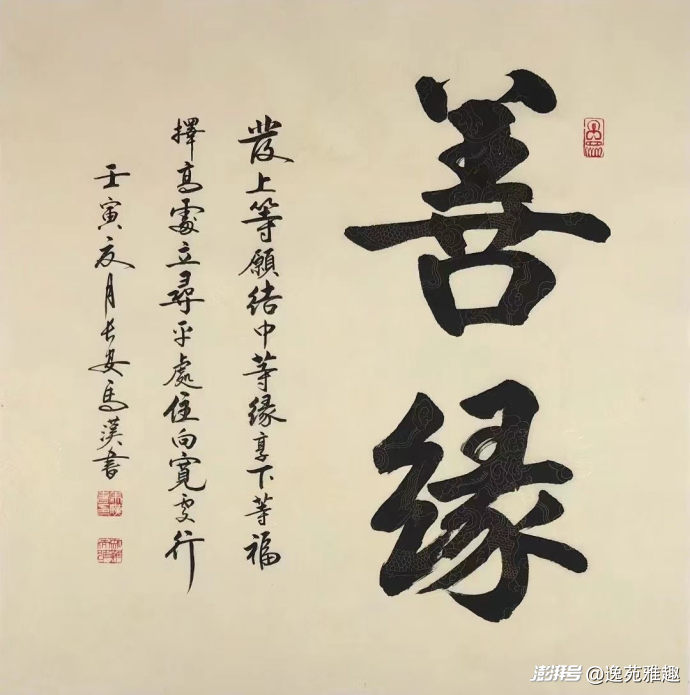 善缘
發上等願结中等缘享下等福
擇高處立尋平處住向寬處行
壬寅夏月长安馬漢書
澎湃号@逸苑雅趣